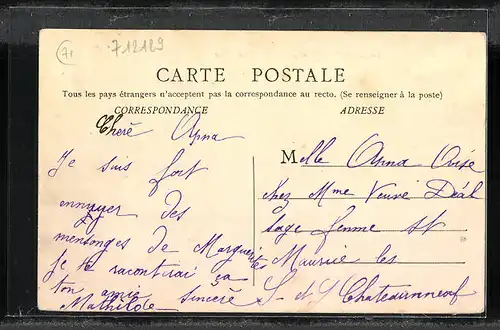 71
712129
CARTE POSTALE
Tous les pays étrangers n'acceptent pas la correspondance au recto. (Se renseigner à la poste)
CORRESPONDANCE
ADRESSE
Cherè Anna
Je suis fort
ennuyer des
mensonges de Marguerites
Je te racontirai ça
ton amie sincère
Mathilde
Melle Anna
chez Mme Veuve
sage femme St
Maurice les
Chateauneuf